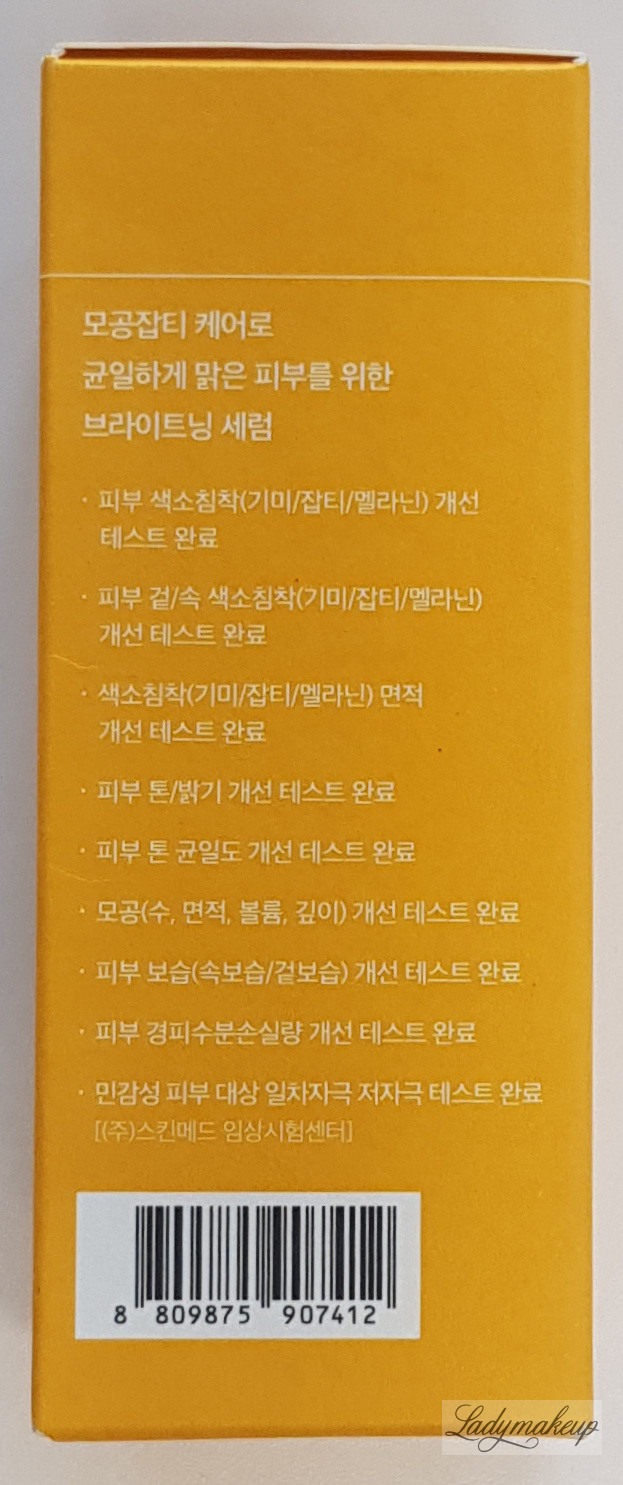 모공잡티 케어로
균일하게 맑은 피부를 위한
브라이트닝 세럼
· 피부 색소침착(기미/잡티/멜라닌) 개선
테스트 완료
· 피부 겉/속 색소침착(기미/잡티/멜라닌)
개선 테스트 완료
· 색소침착(기미/잡티/멜라닌) 면적
개선 테스트 완료
· 피부 톤/밝기 개선 테스트 완료
· 피부 톤 균일도 개선 테스트 완료
· 모공(수, 면적, 볼륨, 깊이) 개선 테스트 완료
· 피부 보습(속보습/겉보습) 개선 테스트 완료
· 피부 경피수분손실량 개선 테스트 완료
· 민감성 피부 대상 일차자극 저자극 테스트 완료
[(주)스킨메드 임상시험센터]
8 809875 907412
Ladymakeup